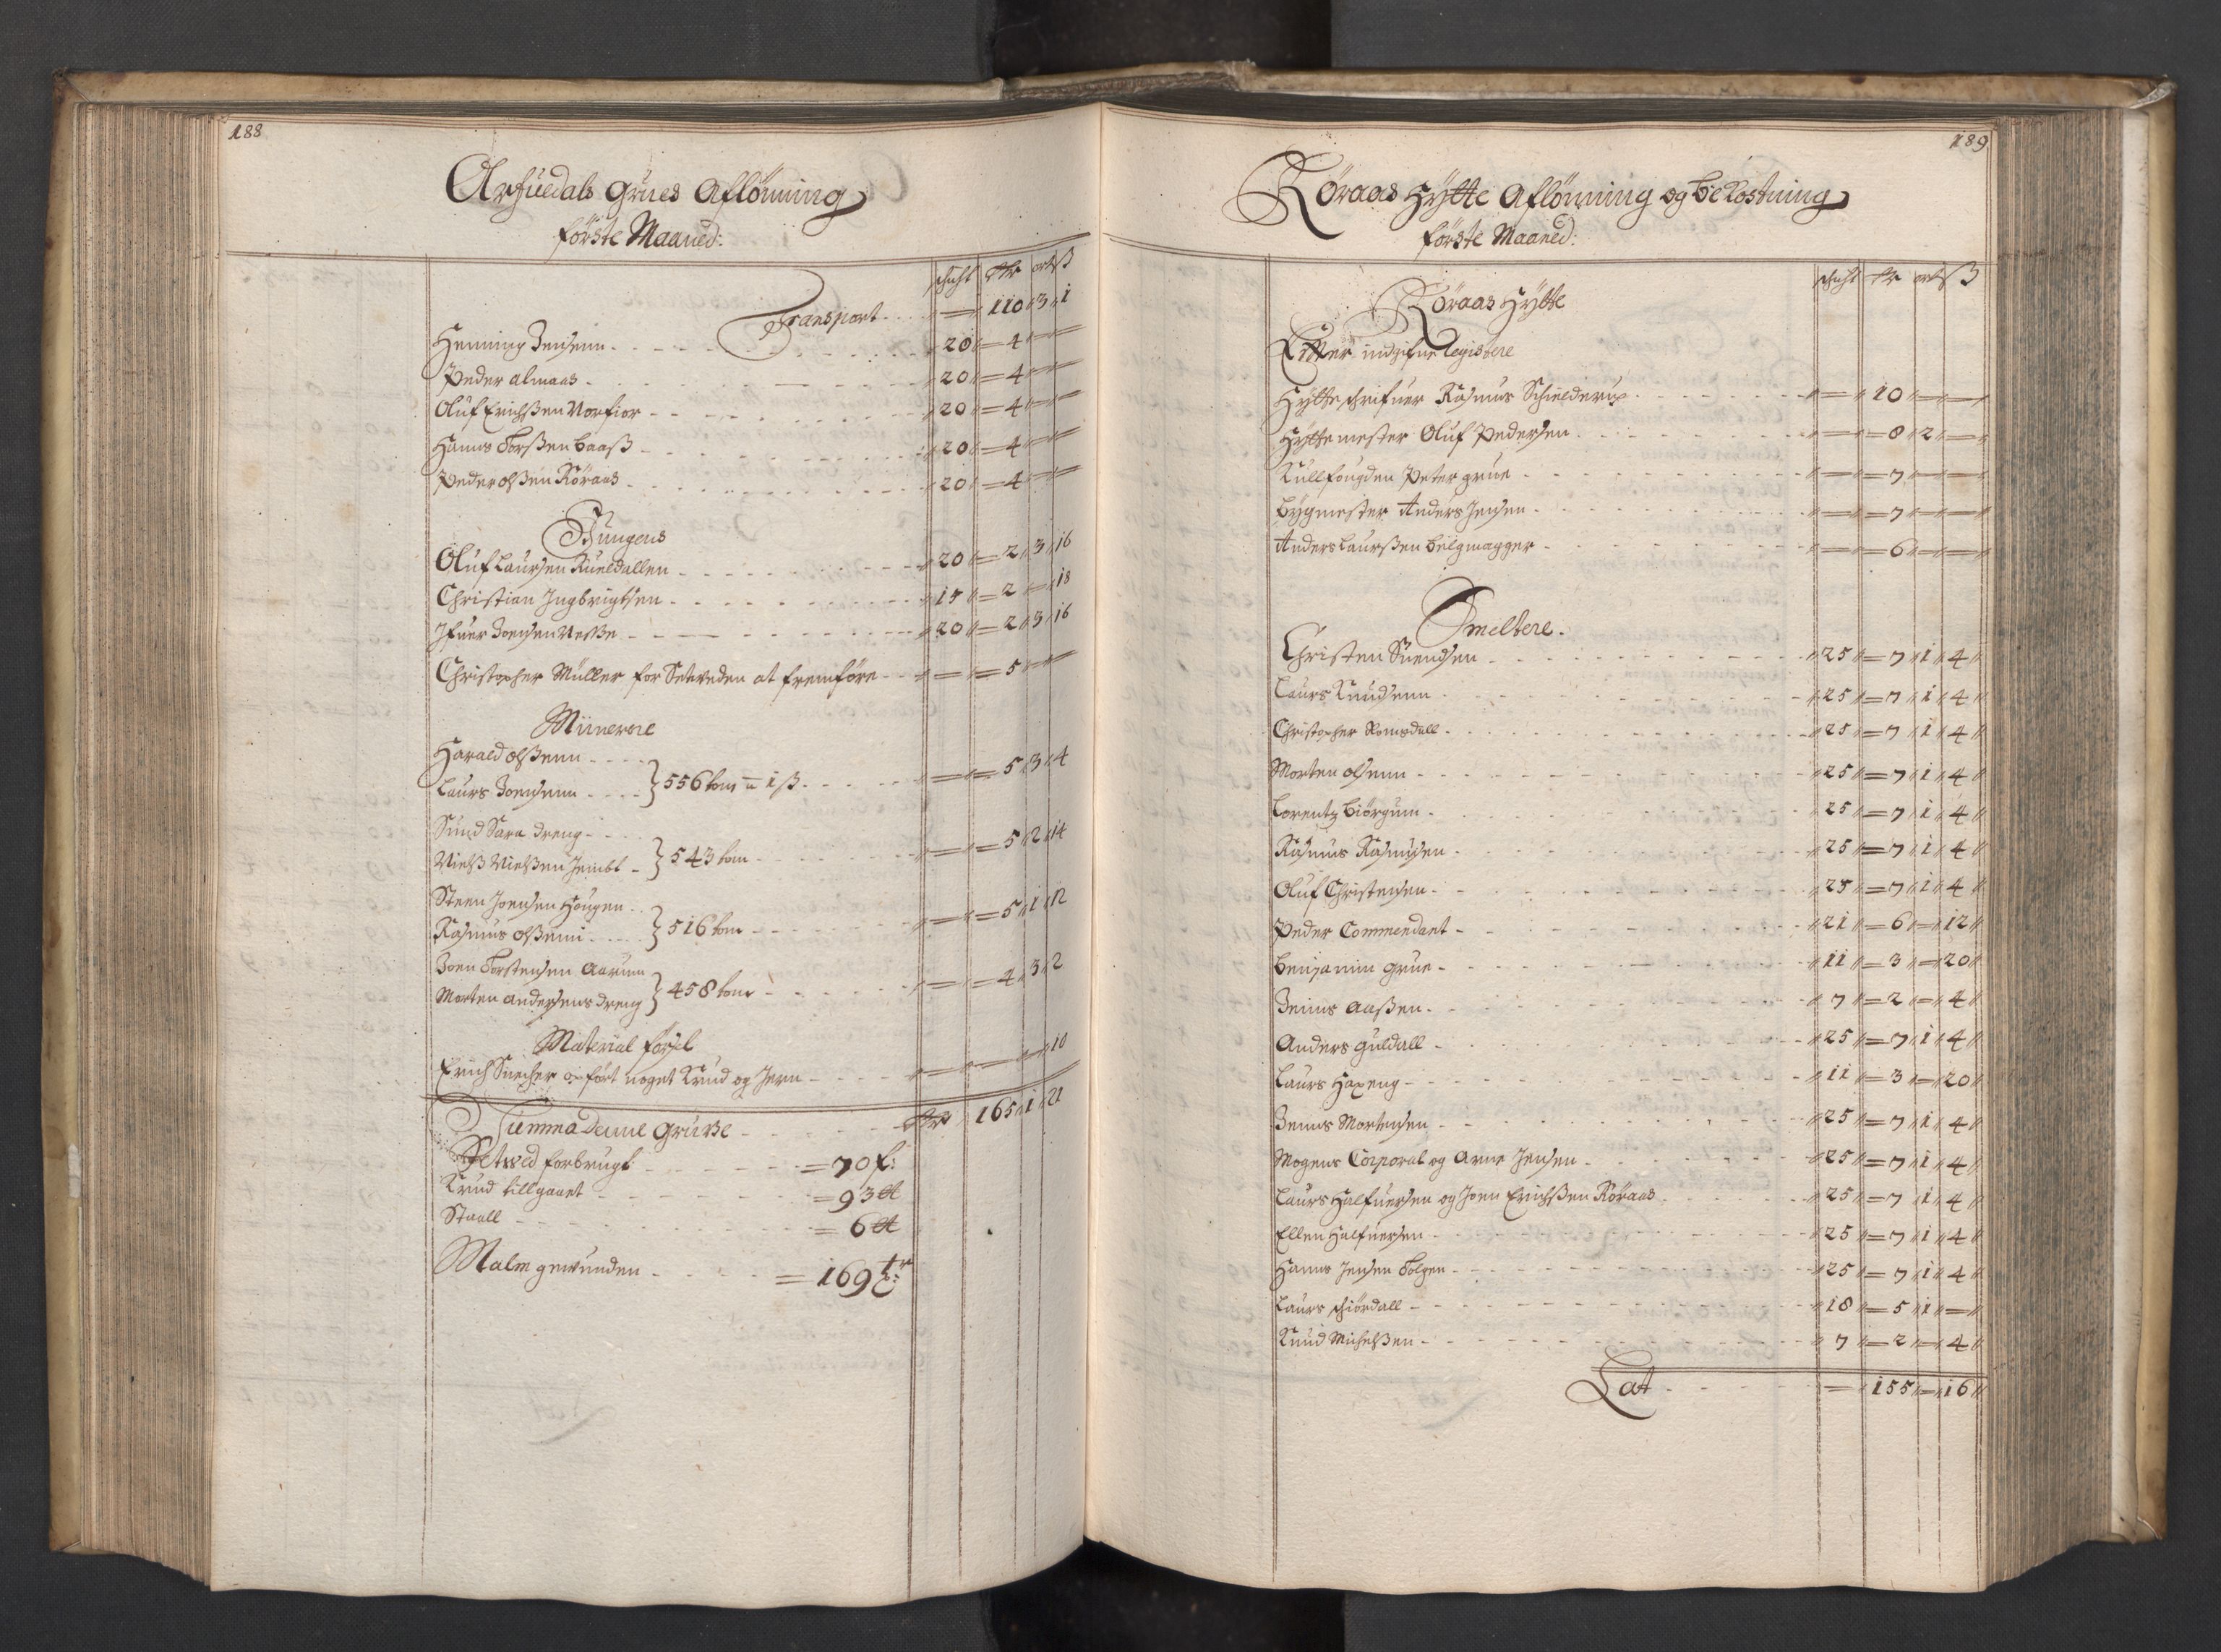 188
Arfuedals Grues Aflönning
förste Maaned:
schicht Rdr ort ß
Transport - = 110 3 1
Henning Jensenn - 20 = 4
Peder Almaas - 20 = 4
Oluf Erichßen Norfior - 20 = 4
Hanns Torßen Baaß - 20 = 4
Peder olßen Röraas - 20 = 4
Jungens
Oluf Laursen Kueldallen - 20 = 2 3 16
Christian Ingbrigtsen - 15 = 2 = 18
Ifuer Joensen - 20 = 2 3 16
Christopher Müller for Setveden at fremföre - = 5
Miinerere
Harald olßenn
Laurs Joensenn } 556 tom a 1 ß - = 5 3 4
Siuid Sara dreng
Nielß Nielßen Jembt } 543 tom - = 5 2 14
Steen Joensen Haugen
Rasmus olßenn } 516 tom - = 5 1 12
Joen Torstensen Aarum
Morten Andersens dreng } 458 tom - = 4 3 2
Material försel
Erich opfört noget Krud og Jern - = 10
Summa denne Gruße - Rdr 165 1 21
Setved forbrugt - = 70 f:
Krud tillgaaet - = 93 ℔
Staall - = 6 ℔
Malm gewunden - = 169 tr:
189
Röraas Hytte Aflönning og bekostning
förste Maaned:
schicht Rdr ort ß
Röraas Hytte
Efter indgifne Register
Hytteschrifuer Rasmus Schielderup - = 10
Hyttemester Oluf Pedersen - = 8 2
Kullfougden Peter grue - = 7
Bygmester Anders Jensen - = 7
Anders Laurßen belgmagger - = 6
Smeltere.
Christen Suendsen - 25 = 7 1 4
Laurs Knudsenn - 25 = 7 1 4
Christopher Romsdall - 25 = 7 1 4
Morten olsenn - 25 = 7 1 4
Lorentz Biörgum - 25 = 7 1 4
Rasmus Rasmusen - 25 = 7 1 4
Oluf Christensen - 25 = 7 1 4
Peder Commendant - 21 = 6 = 12
Benjamin grue - 11 = 3 = 20
Jenns Aaßen - 7 = 2 = 4
Anders Guldall - 25 = 7 1 4
Laurs Haxeng - 11 = 3 = 20
Jenns Mortensen - 25 = 7 1 4
Mogens Corporal og Arne Jensen - 25 = 7 1 4
Laurs Halfuersen og Joen Erichßen Röraas - 25 = 7 1 4
Ellen Halfuersen - 25 = 7 1 4
Hanns Jensen Tolgen - 25 = 7 1 4
Laurs schiördall - 18 = 5 1 =
Knud Michelßen - 7 = 2 = 4
Lat - = 155 = 16